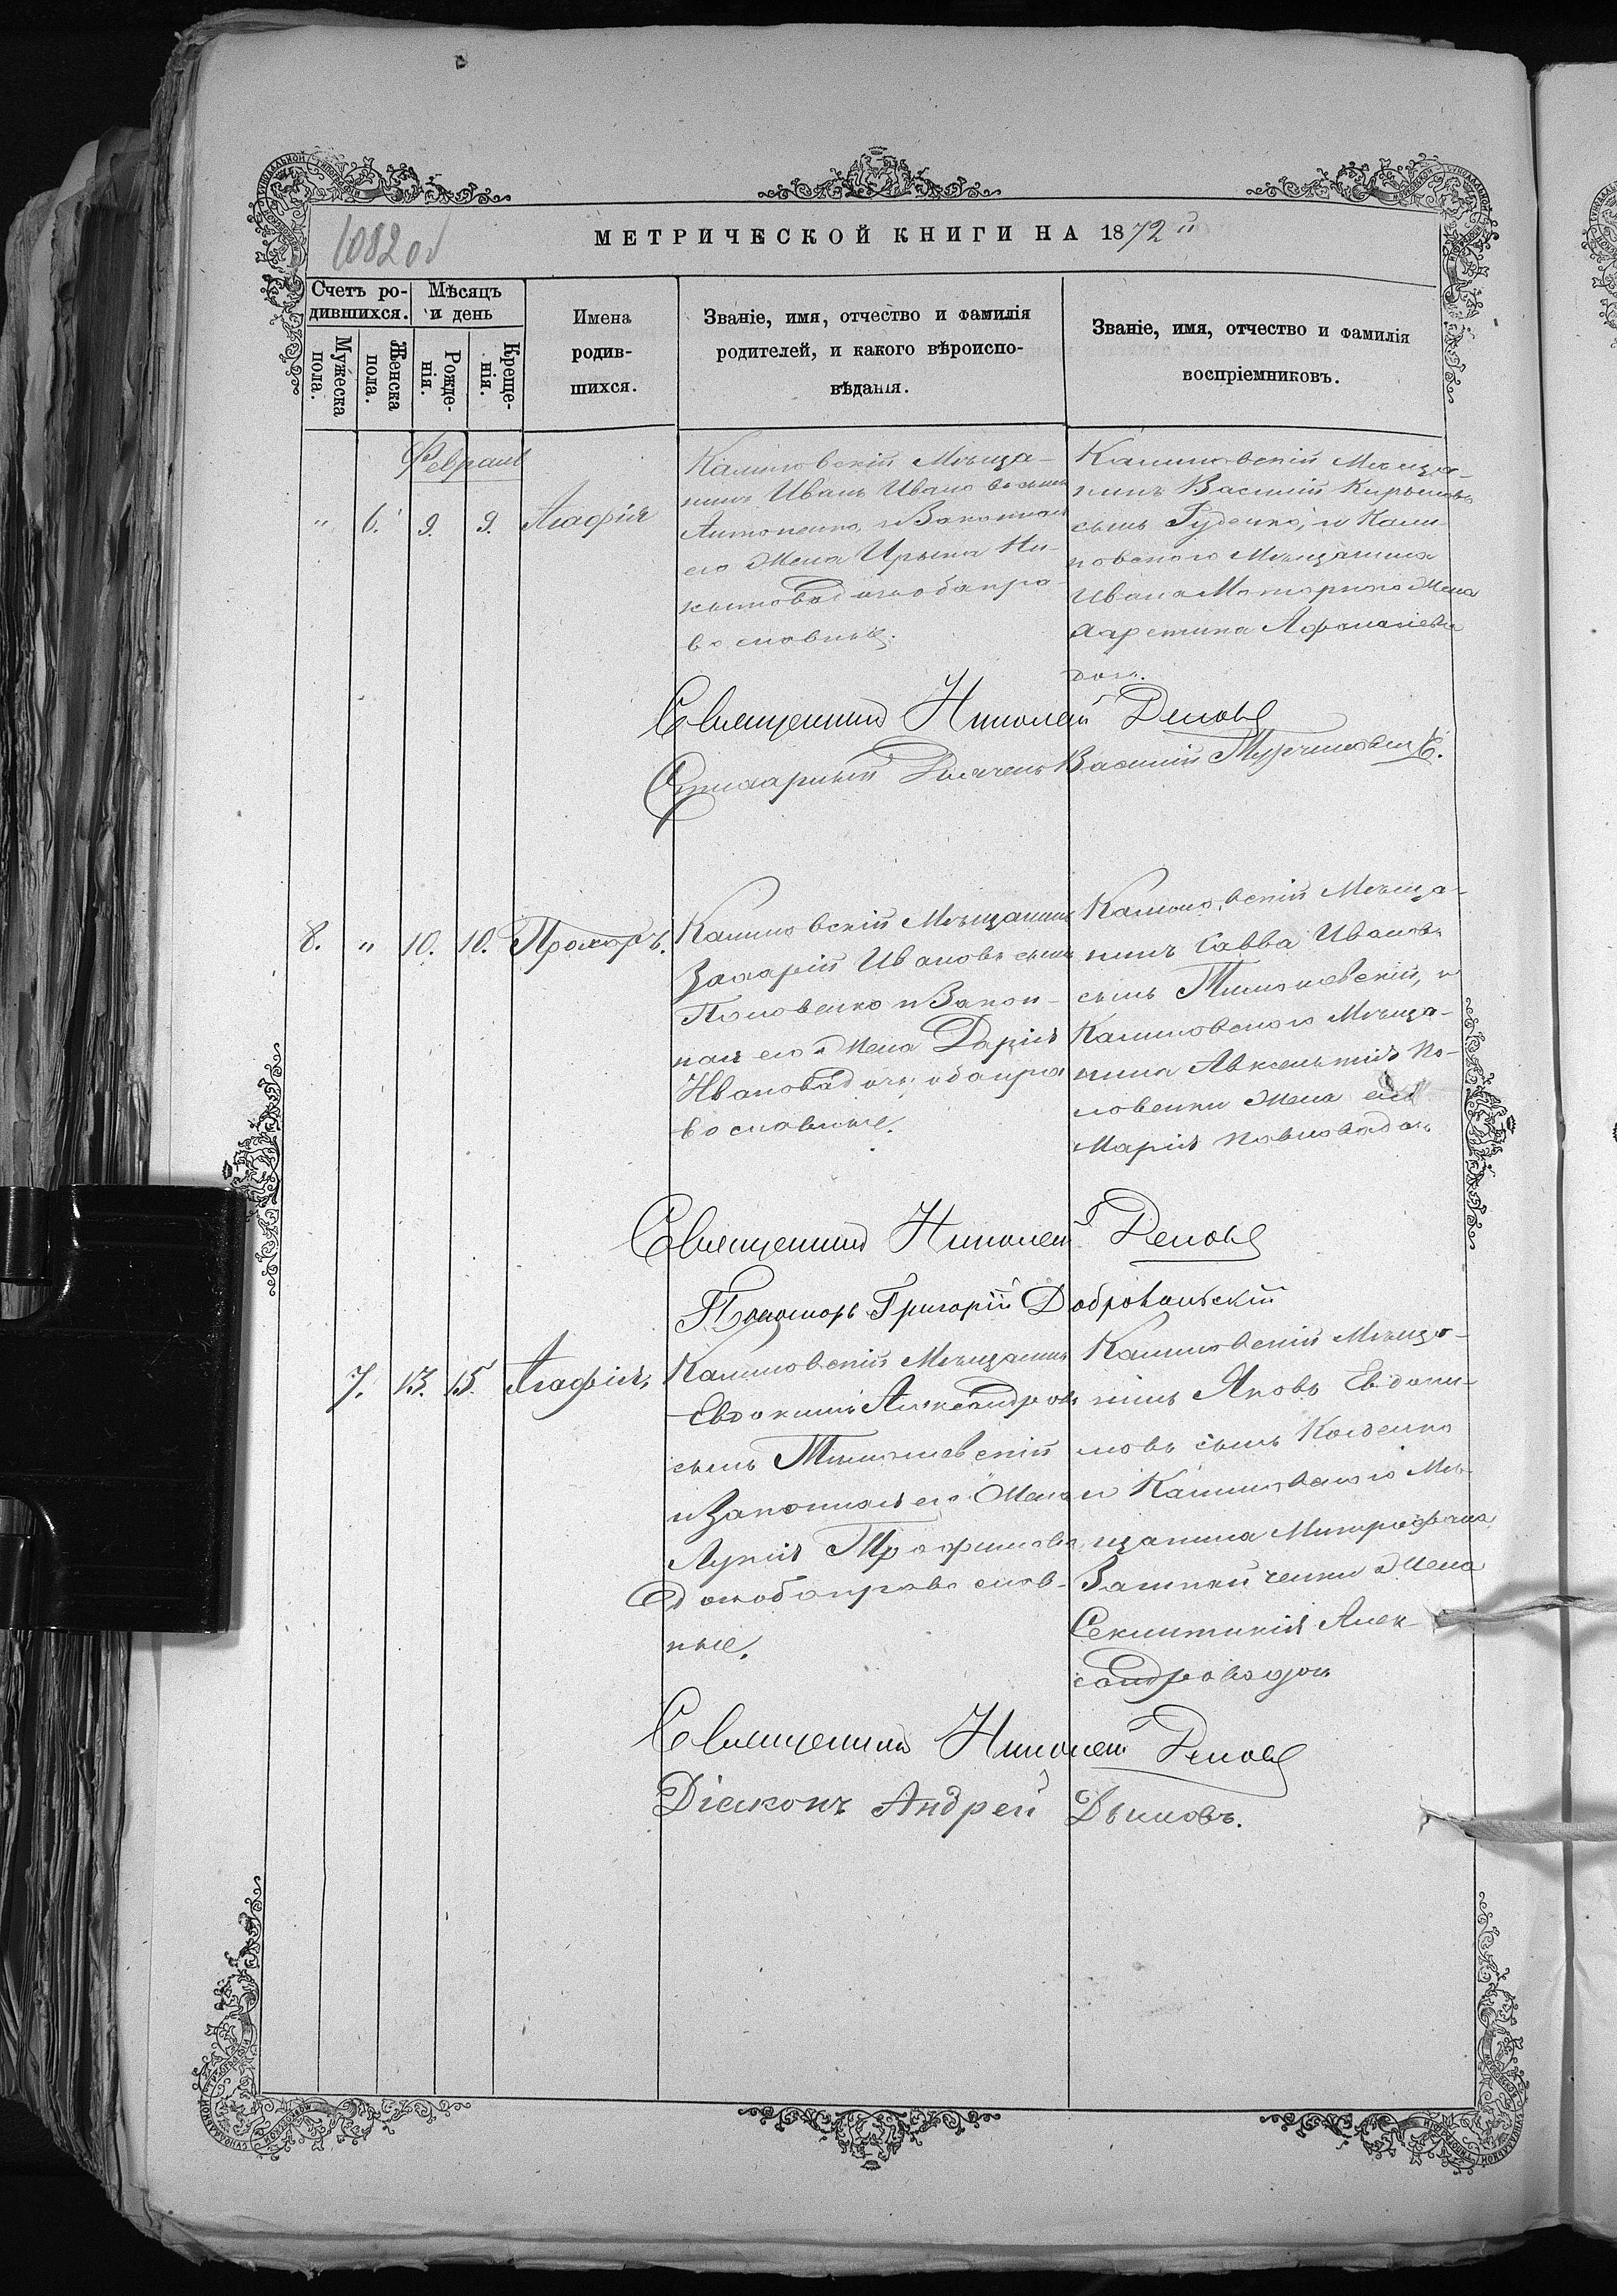 1082 об
МЕТРИЧЕСКОЙ КНИГИ НА 1872й
Счетъ ро-
дившихся.
Мѣсяцъ
и день
Мужеска
пола.
Женска
пола.
Рожде-
нія.
Креще-
нія.
Имена
родив-
шихся.
Званіе, имя, отчество и фамилія
родителей, и какого вѣроиспо-
вѣданія.
Званіе, имя, отчество и фамилія
воспріемниковъ.
Февраль
" 6. 9. 9. Агафія
Калиновскій Мѣща-
нинъ Иванъ Ивановъ сынъ
Антоненко, и Законная
его Жена Ирына Ни-
китова дочь оба пра-
вославные.
Калиновскій Мѣща-
нинъ Василій Кирыловъ
сынъ Гуденко, и Кали-
новского Мѣщанина
Ивана Моторного Жена
Афанасіева
доч.
Священникъ Николай
Стихарный Дьячекъ Василій
8. " 10. 10. Прохоръ.
Калиновскій Мѣщанинъ
Захарій Ивановъ сынъ
Половенко и Закон-
ная его Жена Дарія
Иванова дочь оба пра
вославные.
Калиновскій Мѣща-
нинъ Савва Ивановъ
сынъ Тимошевскій, и
Калиновского Мѣща-
нина Авксентія По-
ловенки Жена его
Марія Павлова доч
Священникъ Николай
Пономарь Григорій Добровольскій
7. 13. 15. Агафія,
Калиновскій Мѣщанинъ
Евдокимъ Александровъ
сынъ Тимошевскій
и Законная его Жена
Лукія Трофимова
дочь оба православ-
ные.
Калиновскій Мѣща-
нинъ Яковъ Евдоки-
мовъ сынъ
и Калиновского Мѣ-
щанина Митрофана
Жена
Секлитикія Алек-
сандрова доч
Священникъ Николай
Діаконъ Андрей Дымовъ.